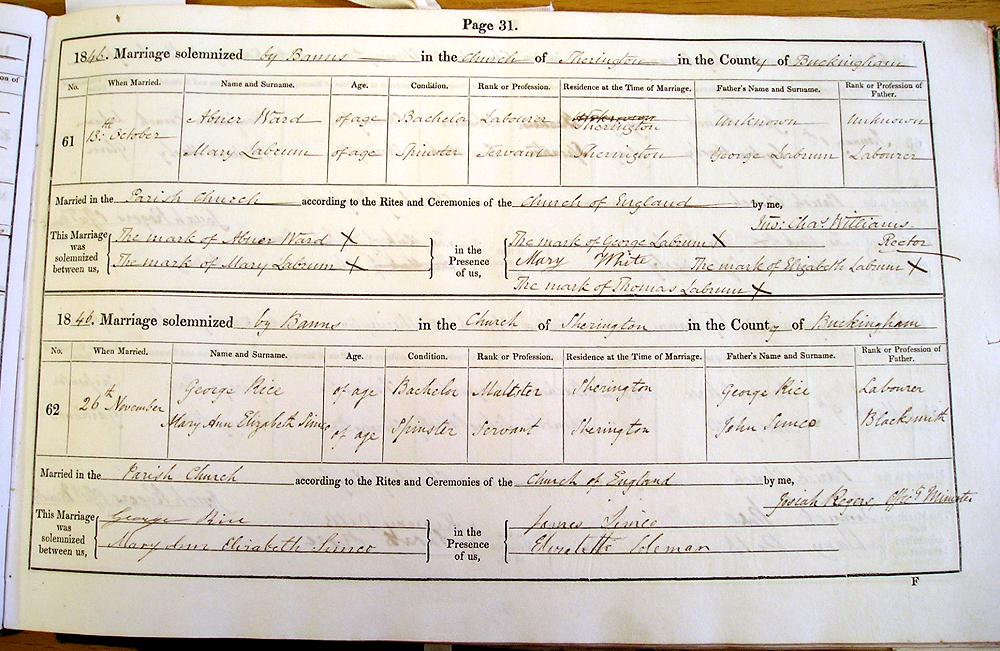 Page 31.
1846. Marriage solemnized by Banns in the Church of Sherington in the County of Buckingham
No. When Married. Name and Surname. Age. Condition. Rank or Profession. Residence at the Time of Marriage. Father's Name and Surname. Rank or Profession of Father.
61 13th October Abner Ward of age Bachelor Labourer Sherington Unknown Unknown
Mary Labrum of age Spinster Servant Sherington George Labrum Labourer
Married in the Parish Church according to the Rites and Ceremonies of the Church of England by me,
Jno: Chas. Williams.
Rector
This Marriage was solemnized between us, The mark of Abner Ward X in the Presence of us, The mark of George Labrum X
The mark of Mary Labrum X Mary White The mark of Elizabeth Labrum X
The mark of Thomas Labrum X
1846. Marriage solemnized by Banns in the Church of Sherington in the County of Buckingham
No. When Married. Name and Surname. Age. Condition. Rank or Profession. Residence at the Time of Marriage. Father's Name and Surname. Rank or Profession of Father.
62 26th November George Rice of age Bachelor Maltster Sherington George Rice Labourer
Mary Ann Elizabeth Simco of age Spinster Servant Sherington John Simco Blacksmith
Married in the Parish Church according to the Rites and Ceremonies of the Church of England by me,
Josiah Rogers, Offic.g Minister
This Marriage was solemnized between us, George Rice in the Presence of us, James Simco
Mary Ann Elizabeth Simco Elizabeth Coleman
F